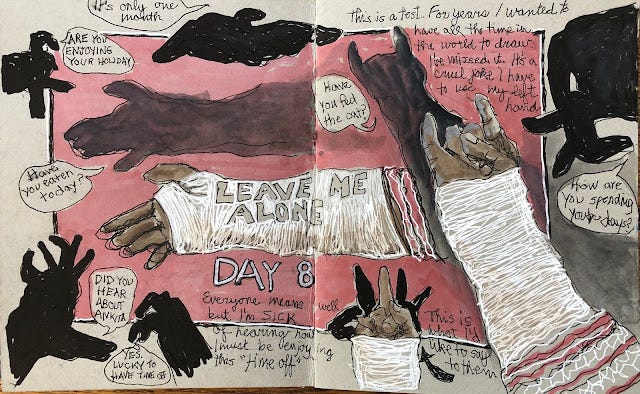 It's only one
month
ARE YOU
ENJOYING
YOUR HOLIDAY
This is a test. For years I wanted to
have all the time in
the world to draw
I've missed it. It's a
cruel joke I have
to use my left
hand
Have
you fed
the cat?
Have
you eaten
today?
LEAVE ME
ALONE
How are
you spending
your days?
DAY 8
DID YOU
HEAR
ABOUT
ANKITA
YES.
LUCKY TO
HAVE TIME OFF
Everyone means well
but I'm SICK
of hearing how
I must be enjoying
this "time off"
This is
what I'd
like to say
to them